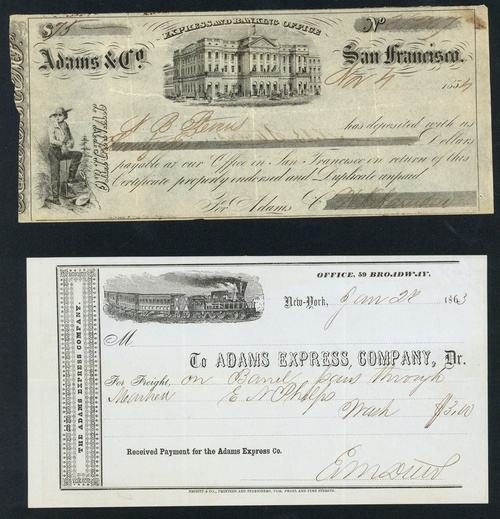 EXPRESS AND BANKING OFFICE
$75 No
Adams & Co. San Francisco.
Nov 4 1854
ORIGINAL
has deposited with us
Dollars
payable at our Office in San Francisco in return of this
Certificate properly endorsed and Duplicate unpaid
For Adams & Co
THE ADAMS EXPRESS COMPANY.
OFFICE, 59 BROADWAY.
New-York, Jan 28 1863
M
To ADAMS EXPRESS COMPANY, Dr.
For Freight, on Barrel from through
E N Phelps
Wash $3.00
Received Payment for the Adams Express Co.
NESBITT & CO., PRINTERS AND STATIONERS, COR. PEARL AND PINE STREETS.